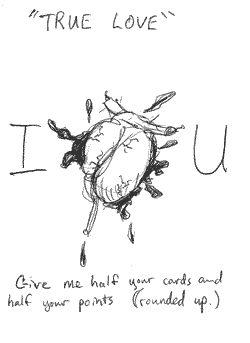 "TRUE LOVE"
I U
Give me half your cards and
half your points (rounded up.)